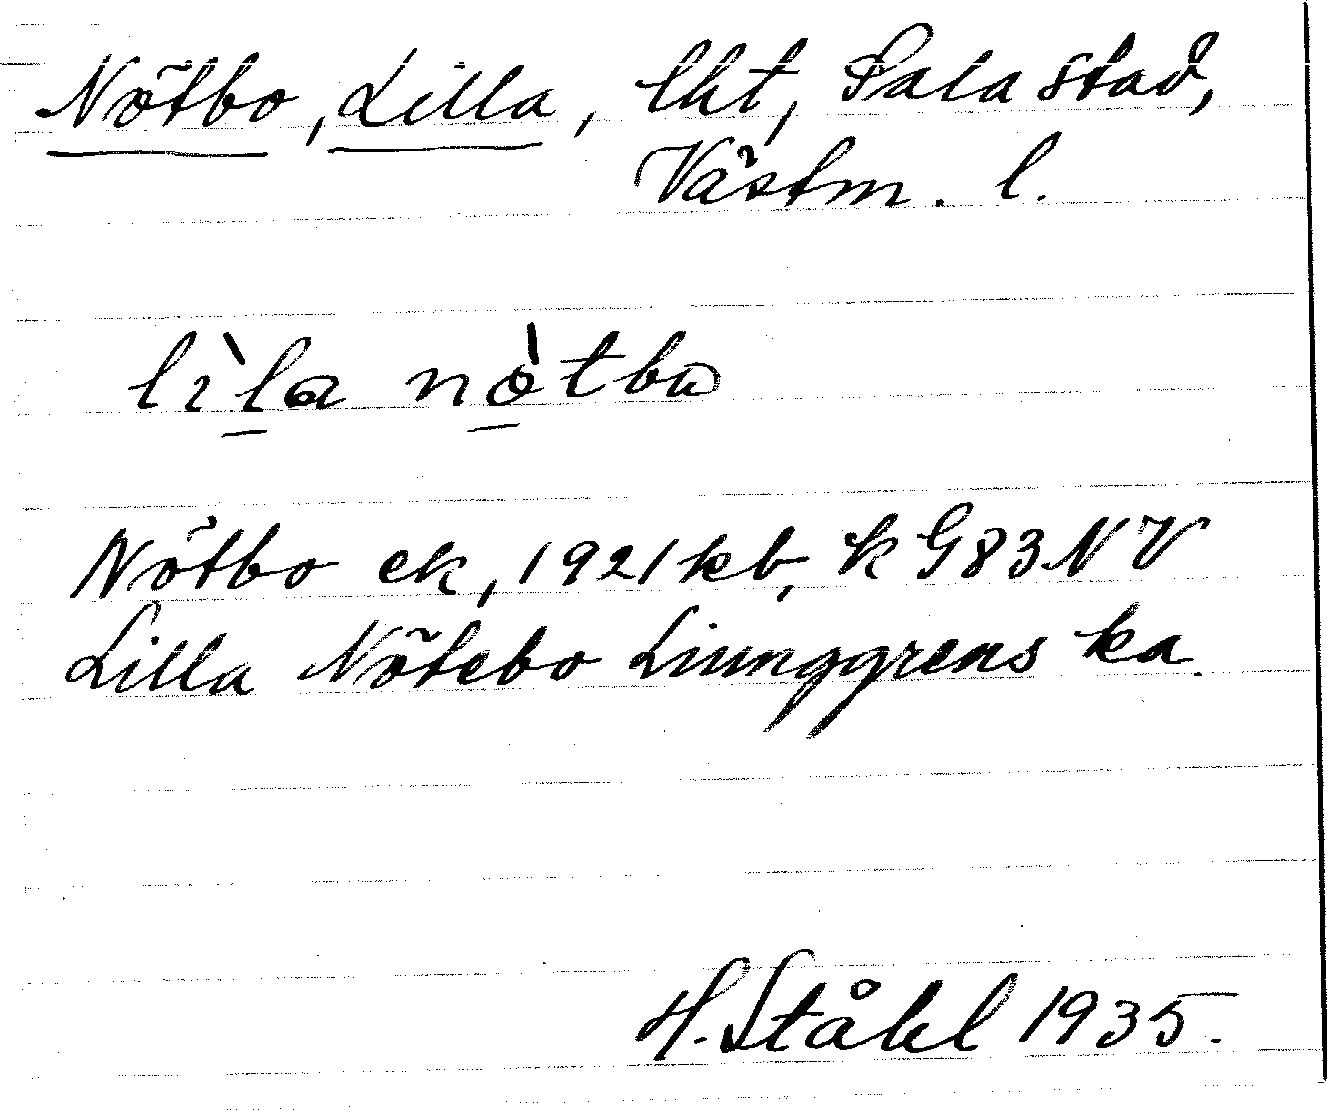 Nötbo, Lilla, lht, Sala stad,
Västm. l.
lìla nòtbω
Nötbo ek, 1921 kb, k G83 NV
Lilla Nötebo Liunggrens ka.
H. Ståhl 1935.